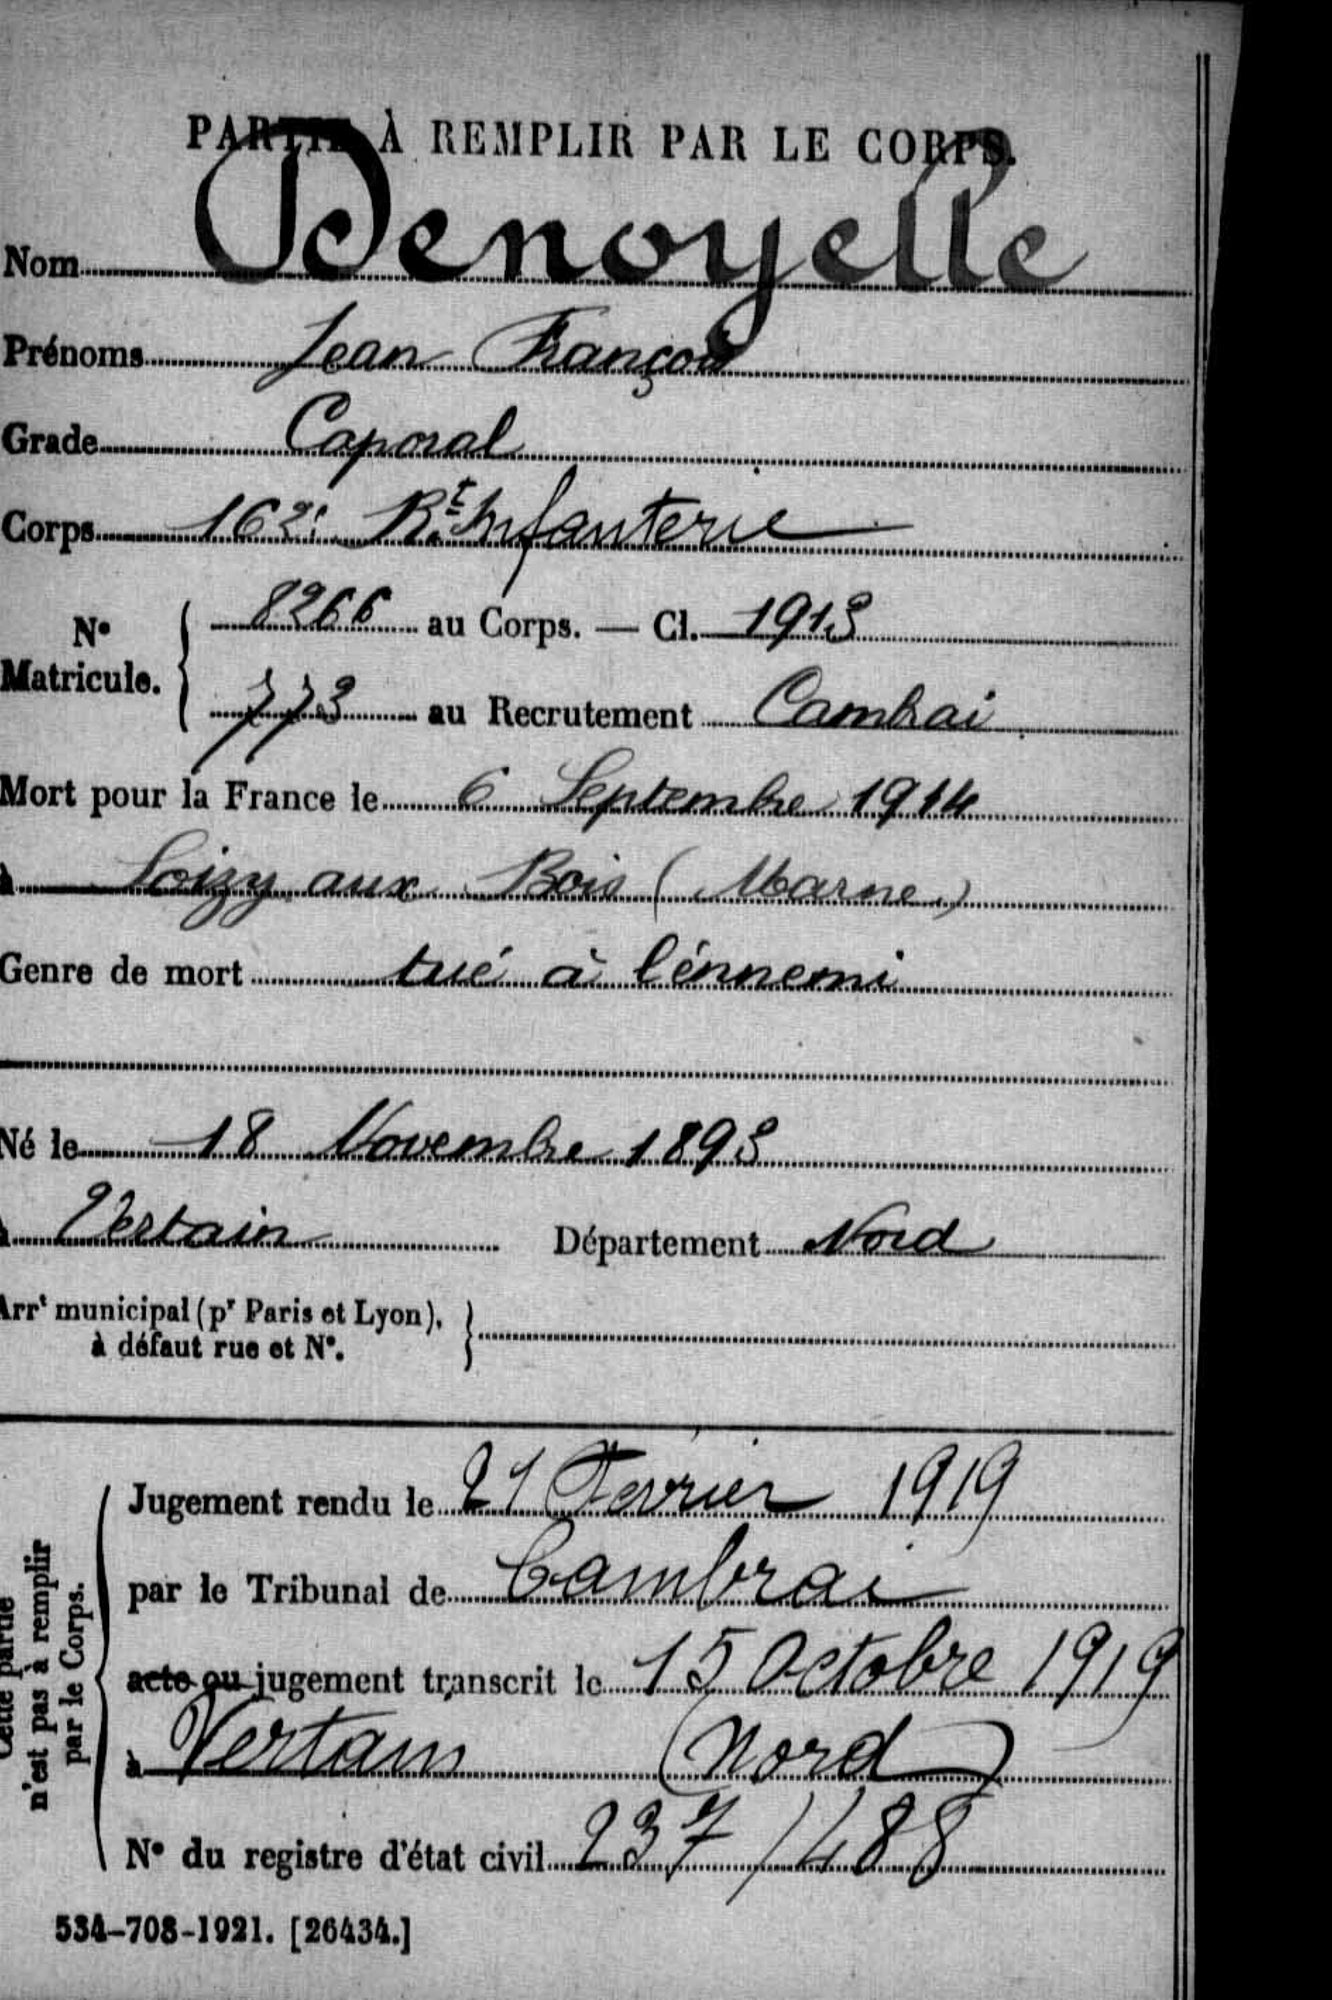 PARTIE À REMPLIR PAR LE CORPS.
Nom Denoyelle
Prénoms Jean François
Grade Caporal
Corps 162e Rt Infanterie
N° Matricule. 8266 au Corps. — Cl. 1913
773 au Recrutement Cambrai
Mort pour la France le 6 Septembre 1914
à Loizy aux Bois (Marne)
Genre de mort tué à l'énnemi
Né le 18 Novembre 1893
à Vertain Département Nord
Arrt municipal (pr Paris et Lyon),
à défaut rue et N°.
Cette partie
n'est pas à remplir
par le Corps.
Jugement rendu le 21 Fevrier 1919
par le Tribunal de Cambrai
acte ou jugement transcrit le 15 Octobre 1919
à Vertain (Nord)
N° du registre d'état civil 237/488
534-708-1921. [26434.]